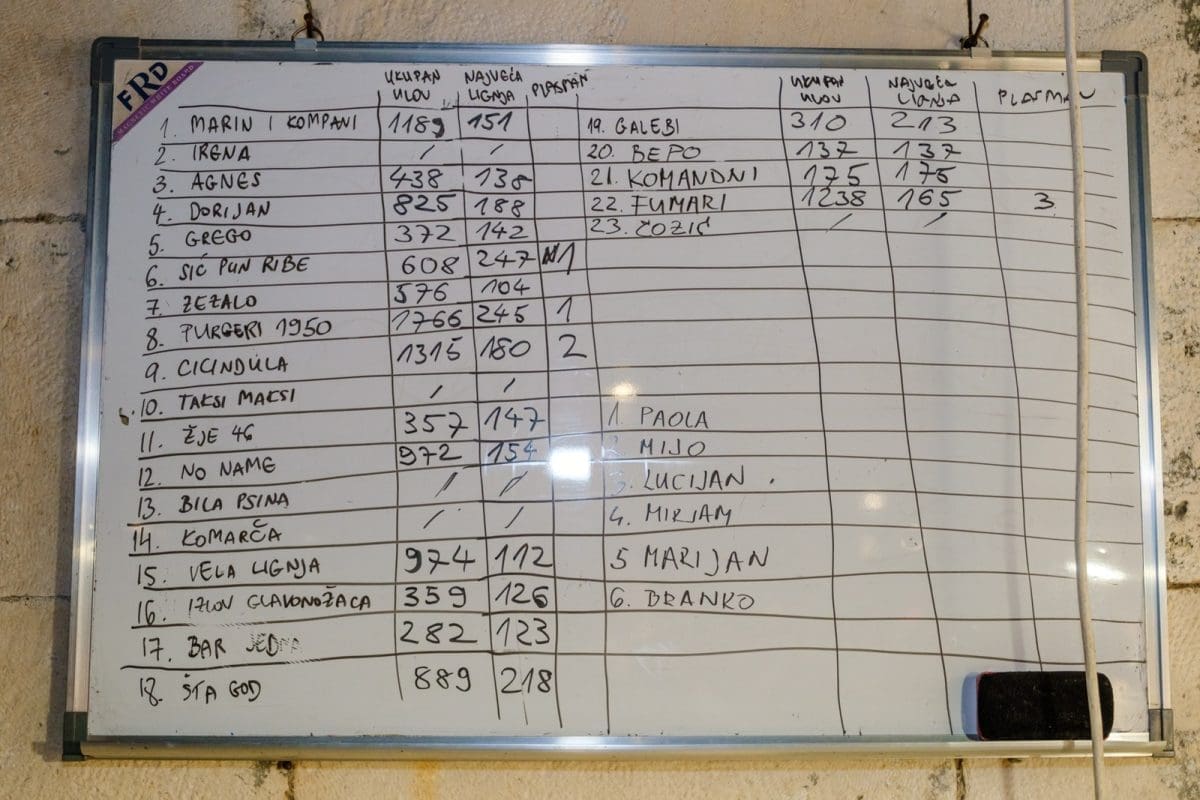 FRD
MAGNETIC WHITE BOARD
UKUPAN ULOV NAJVEĆA LIGNJA PLASMAN
1. MARIN I KOMPANI 1189 151
2. IRENA / /
3. AGNES 438 138
4. DORIJAN 825 188
5. GREGO 372 142
6. SIĆ PUN RIBE 608 247 N1
7. ZEZALO 576 104
8. PURGERI 1950 1766 245 1
9. CICINDULA 1315 180 2
10. TAKSI MAKSI / /
11. ŽJE 46 357 147
12. NO NAME 972 154
13. BILA PSINA / /
14. KOMARČA / /
15. VELA LIGNJA 974 112
16. IZLOV GLAVONOŽACA 359 126
17. BAR JEDNA 282 123
18. ŠTA GOD 889 218
UKUPAN ULOV NAJVEĆA LIGNJA PLASMAN
19. GALEBI 310 213
20. BEPO 137 137
21. KOMANDNI 175 175
22. FUMARI 1238 165 3
23. ČOZIĆ / /
1. PAOLA
2. MIJO
3. LUCIJAN
4. MIRJAM
5 MARIJAN
6. BRANKO